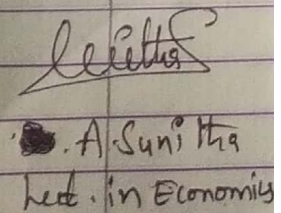 . A. Sunitha
Lect. in Economics